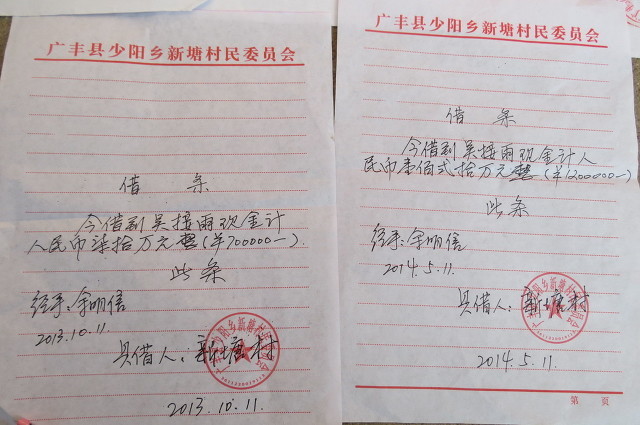 广丰县少阳乡新塘村民委员会
借 条
今借到吴接雨现金计
人民币柒拾万元整(¥700000-).
此条
经手:余明信
2013.10.11.
具借人:新塘村
2013.10.11.
广丰县少阳乡新塘村民委员会
借 条
今借到吴接雨现金计人
民币壹佰弍拾万元整(¥1200000-)
此条
经手:余明信
2014.5.11.
具借人:新塘村
2014.5.11.
第 页